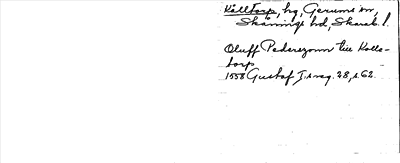 Källtorp, hg, Gerums sn,
Skånings hd, Skarab. l.
Oluff Pederszonn till Kolle-
torp
1558 Gustaf I:s reg. 28, s. 62.